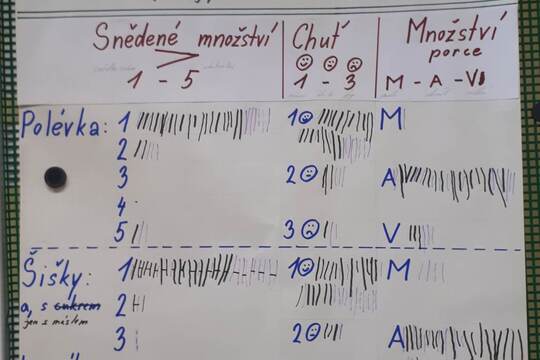 Snědené množství Chuť Množství
porce
1 - 5 1 - 3 M - A - V
Polévka: 1 1 M
2
3 2 A
4
5 3 V
Šišky: 1 1 M
a, s cukrem 2
jen s máslem
3 2 A